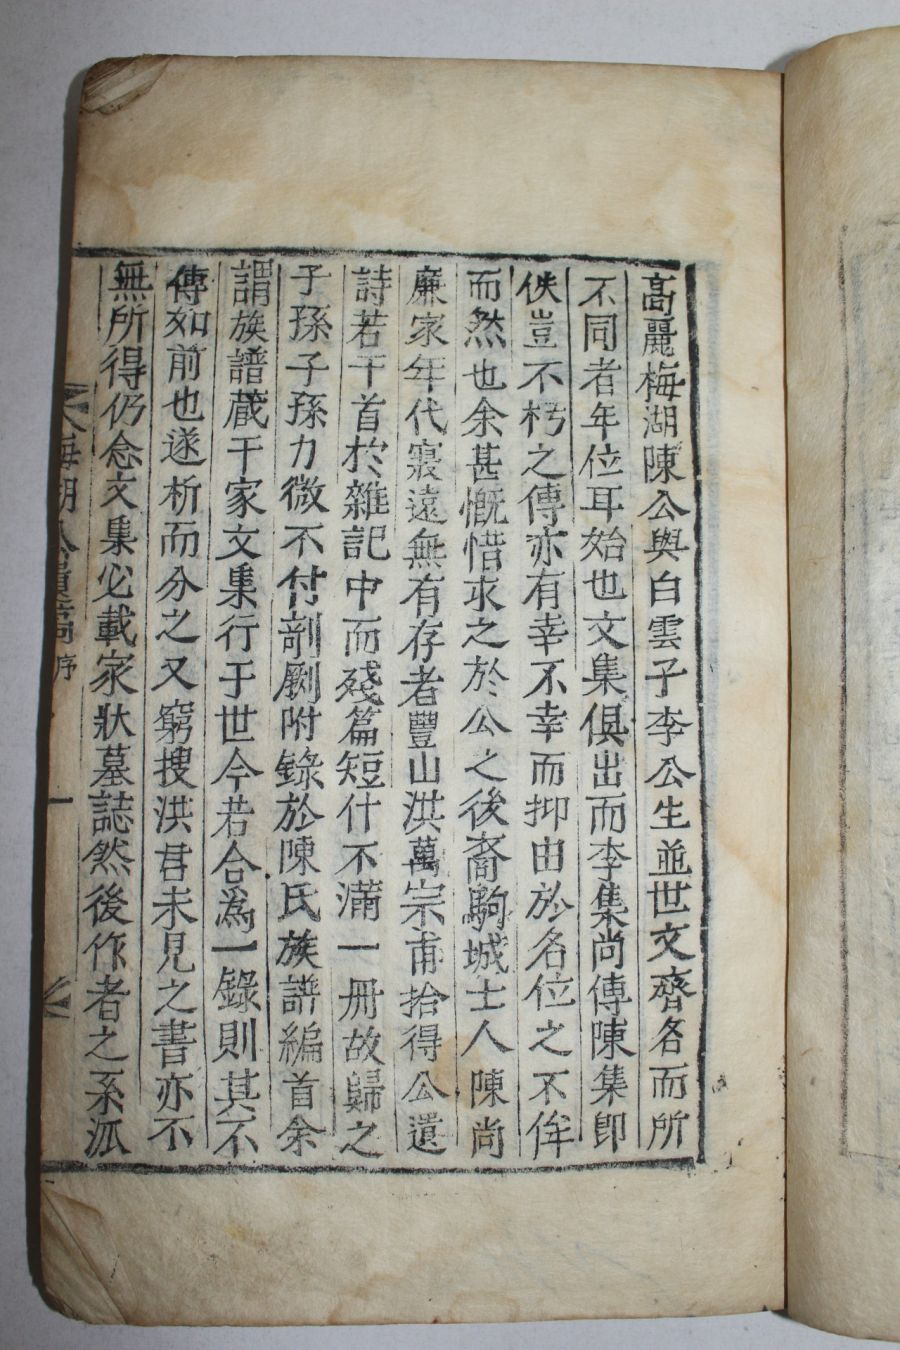 高麗梅湖陳公與白雲子李公生並世文齊各而所
不同者年位耳始也文集俱出而李集尚傳陳集即
佚豈不朽之傳亦有幸不幸而抑由於名位之不侔
而然也余甚慨惜求之於公之後裔駒城士人陳尚
廉家年代寖遠無有存者豐山洪萬宗甫拾得公遺
詩若干首於雜記中而殘篇短什不滿一冊故歸之
子孫子孫力微不付剞劂附錄於陳氏族譜編首余
謂族譜藏于家文集行于世今若合為一錄則其不
傳如前也遂析而分之又窮搜洪君未見之書亦不
無所得仍念文集必載家狀墓誌然後作者之系派
序 一